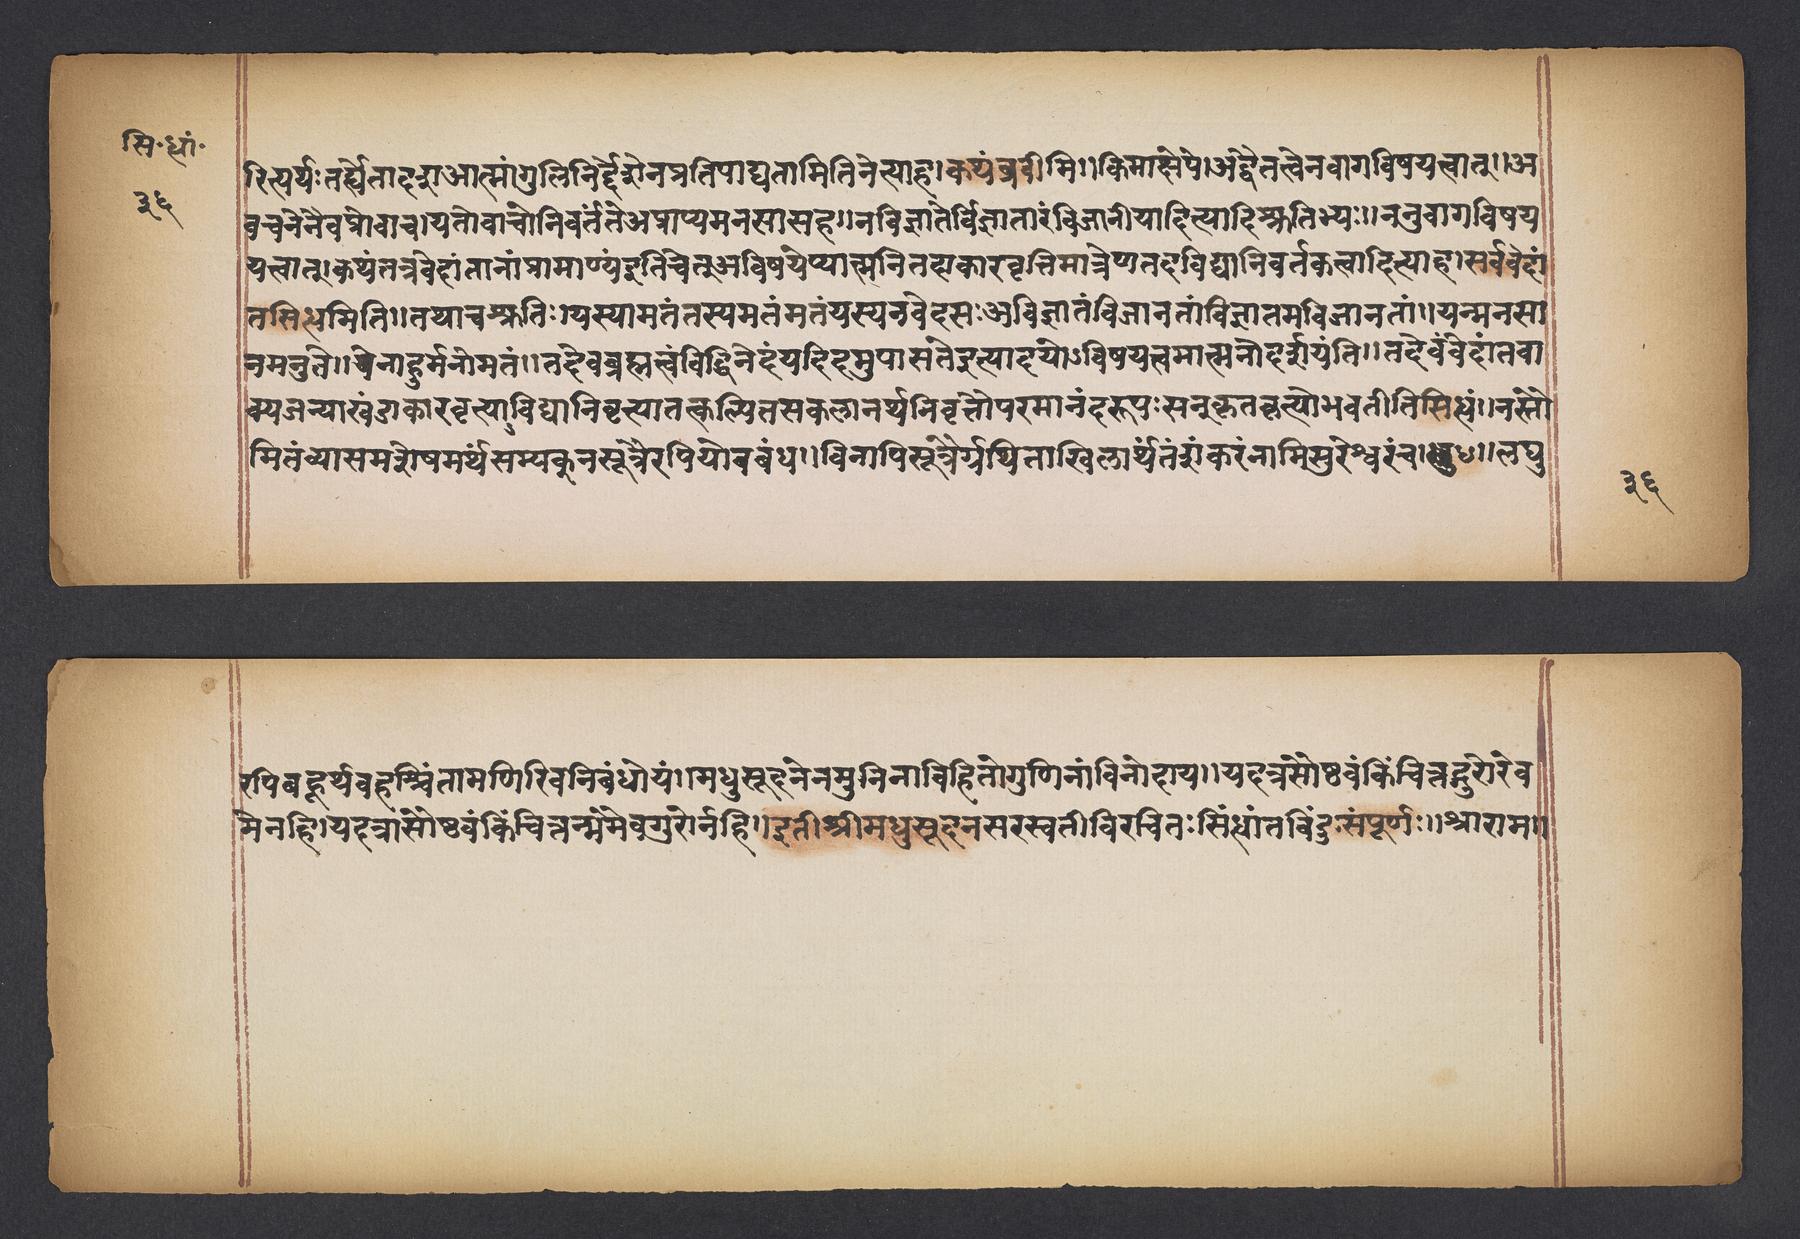 सि·ध्यां·
३६
रित्यर्थः तर्ह्येतादृश आत्मांगुलिनिर्द्देशेन प्रतिपाद्यतामिति नेत्याह। कथं ब्रवीमि।। किमाक्षेपे। अद्वैतत्वेन वागविषयत्वात्।। अ
वचनेनैव प्रोवाच। यतो वाचो निवर्तंते अप्राप्य मनसा सह।। न विज्ञातेर्विज्ञातारं विजानीयादित्यादिश्रुतिभ्यः।। ननु वागविषय
यत्वात्। कथं तत्र वेदांतानां प्रामाण्यं इति चेत् अविषयेप्यात्मनि तदाकारवृत्तिमात्रेण तदविद्यानिवर्तकत्वादित्याह। सर्ववेदां
तसिध्धमिति।। तथा च श्रुतिः। यस्यामतं तस्य मतं मतं यस्य न वेद सः अविज्ञातं विजानतां विज्ञातमविजानतां।। यन्मनसा
न मनुते।। येनाहुर्मनो मतं।। तदेव ब्रह्म त्वं विद्धि नेदं यदिदमुपासते इत्यादयोऽविषयत्वमात्मनो दर्शयंति।। तदेवं वेदांतवा
क्यजन्याखंडाकारवृत्त्याविद्यानिवृत्त्या तत्कल्पितसकलानर्थनिवृत्तौ परमानंदरूपः सन् कृतकृत्यो भवतीति सिध्धं।। न स्तौ
मि तं व्यासमशेषमर्थं सम्यक् न सूत्रैरपि यो बबंध।। विनापि सूत्रैर्ग्रथिताखिलार्थं तं शंकरं नामि सुरेश्वरं च। लघु
३६
रपि बह्वर्थवहश्चिंतामणिरिव निबंधोयं।। मधुसूदनेन मुनिना विहितो गुणिनां विनोदाय।। यदत्र सौष्ठवं किंचित्तद्गुरोरेव
मे न हि। यदत्रासौष्ठवं किंचित्तन्ममेव गुरोर्न हि।। इती श्रीमधुसूदनसरस्वतीविरचितः सिंध्धांतबिंदु संपूर्णः।। श्रीराम।।